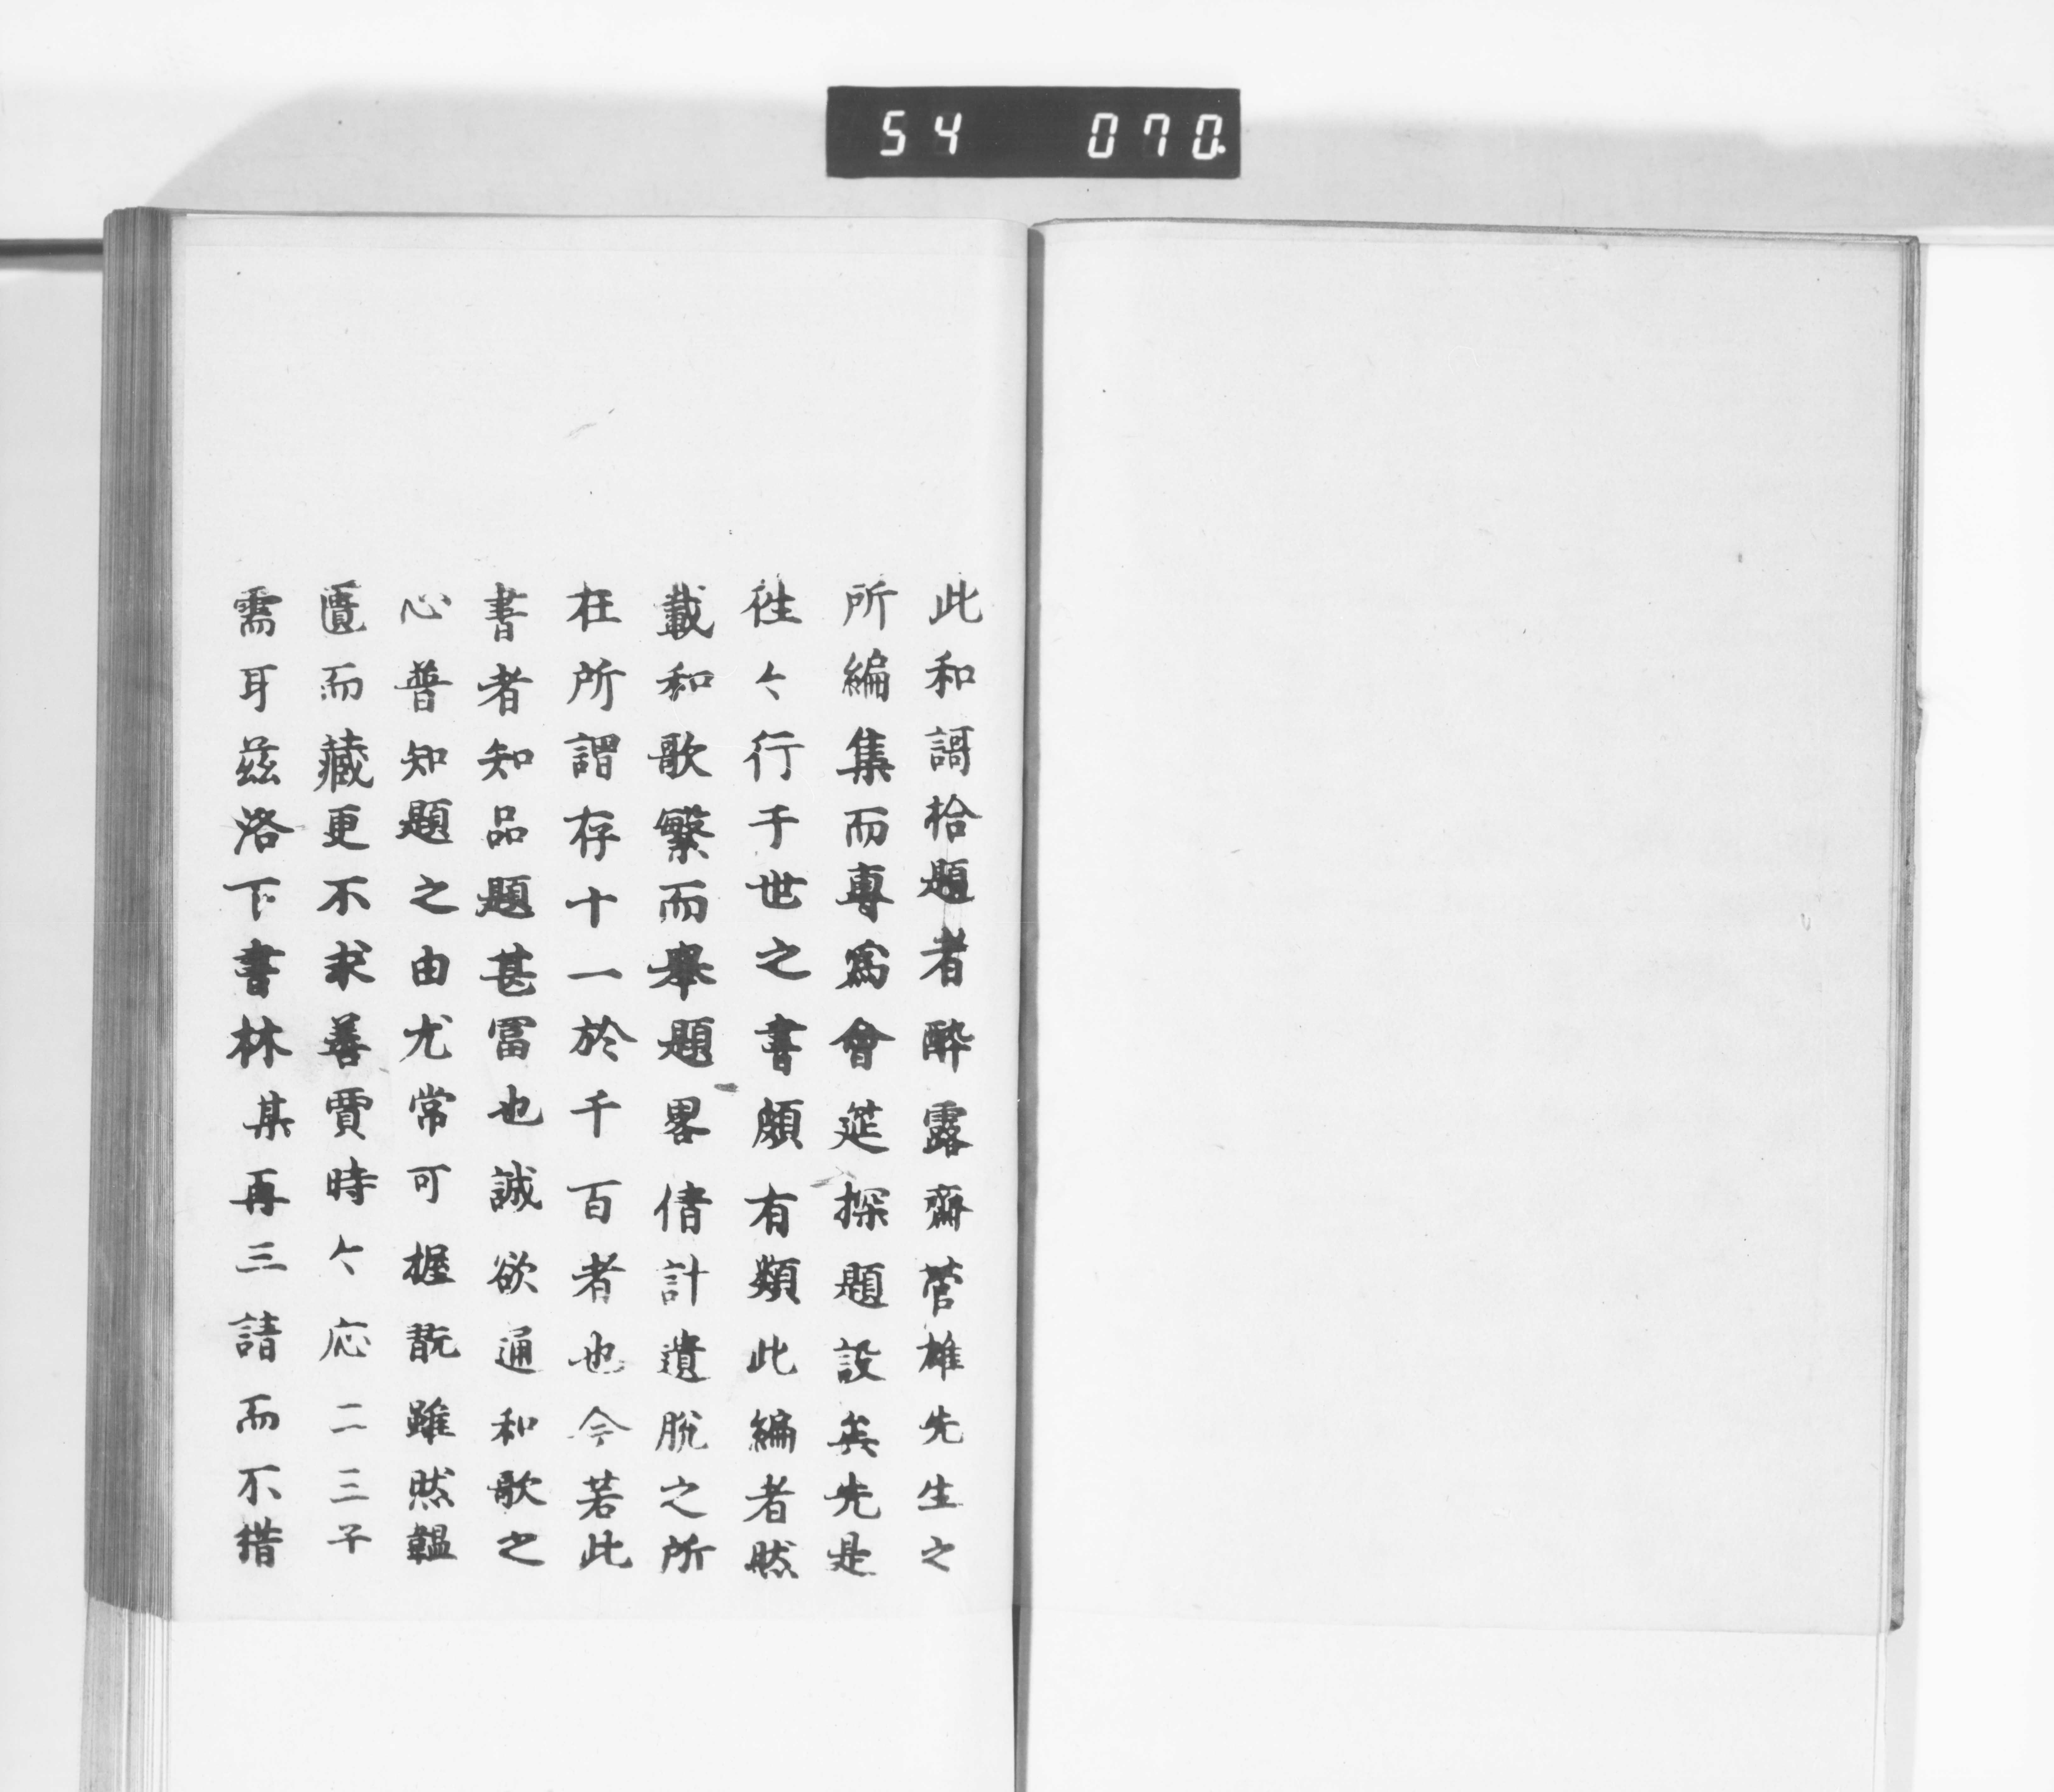 54 070.
此和謌拾題者酔露齋菅雄先生之
所編集而專爲會筵探題設矣先是
徃々行于世之書頗有類此編者然
載和歌繁而舉題畧僣計遺脱之所
在所謂存十一於千百者也今若此
書者知品題甚冨也誠欲通和歌之
心普知題之由尤常可握翫雖然韞
匱而藏更不求善賈時々応二三子
需耳茲洛下書林某再三請而不措